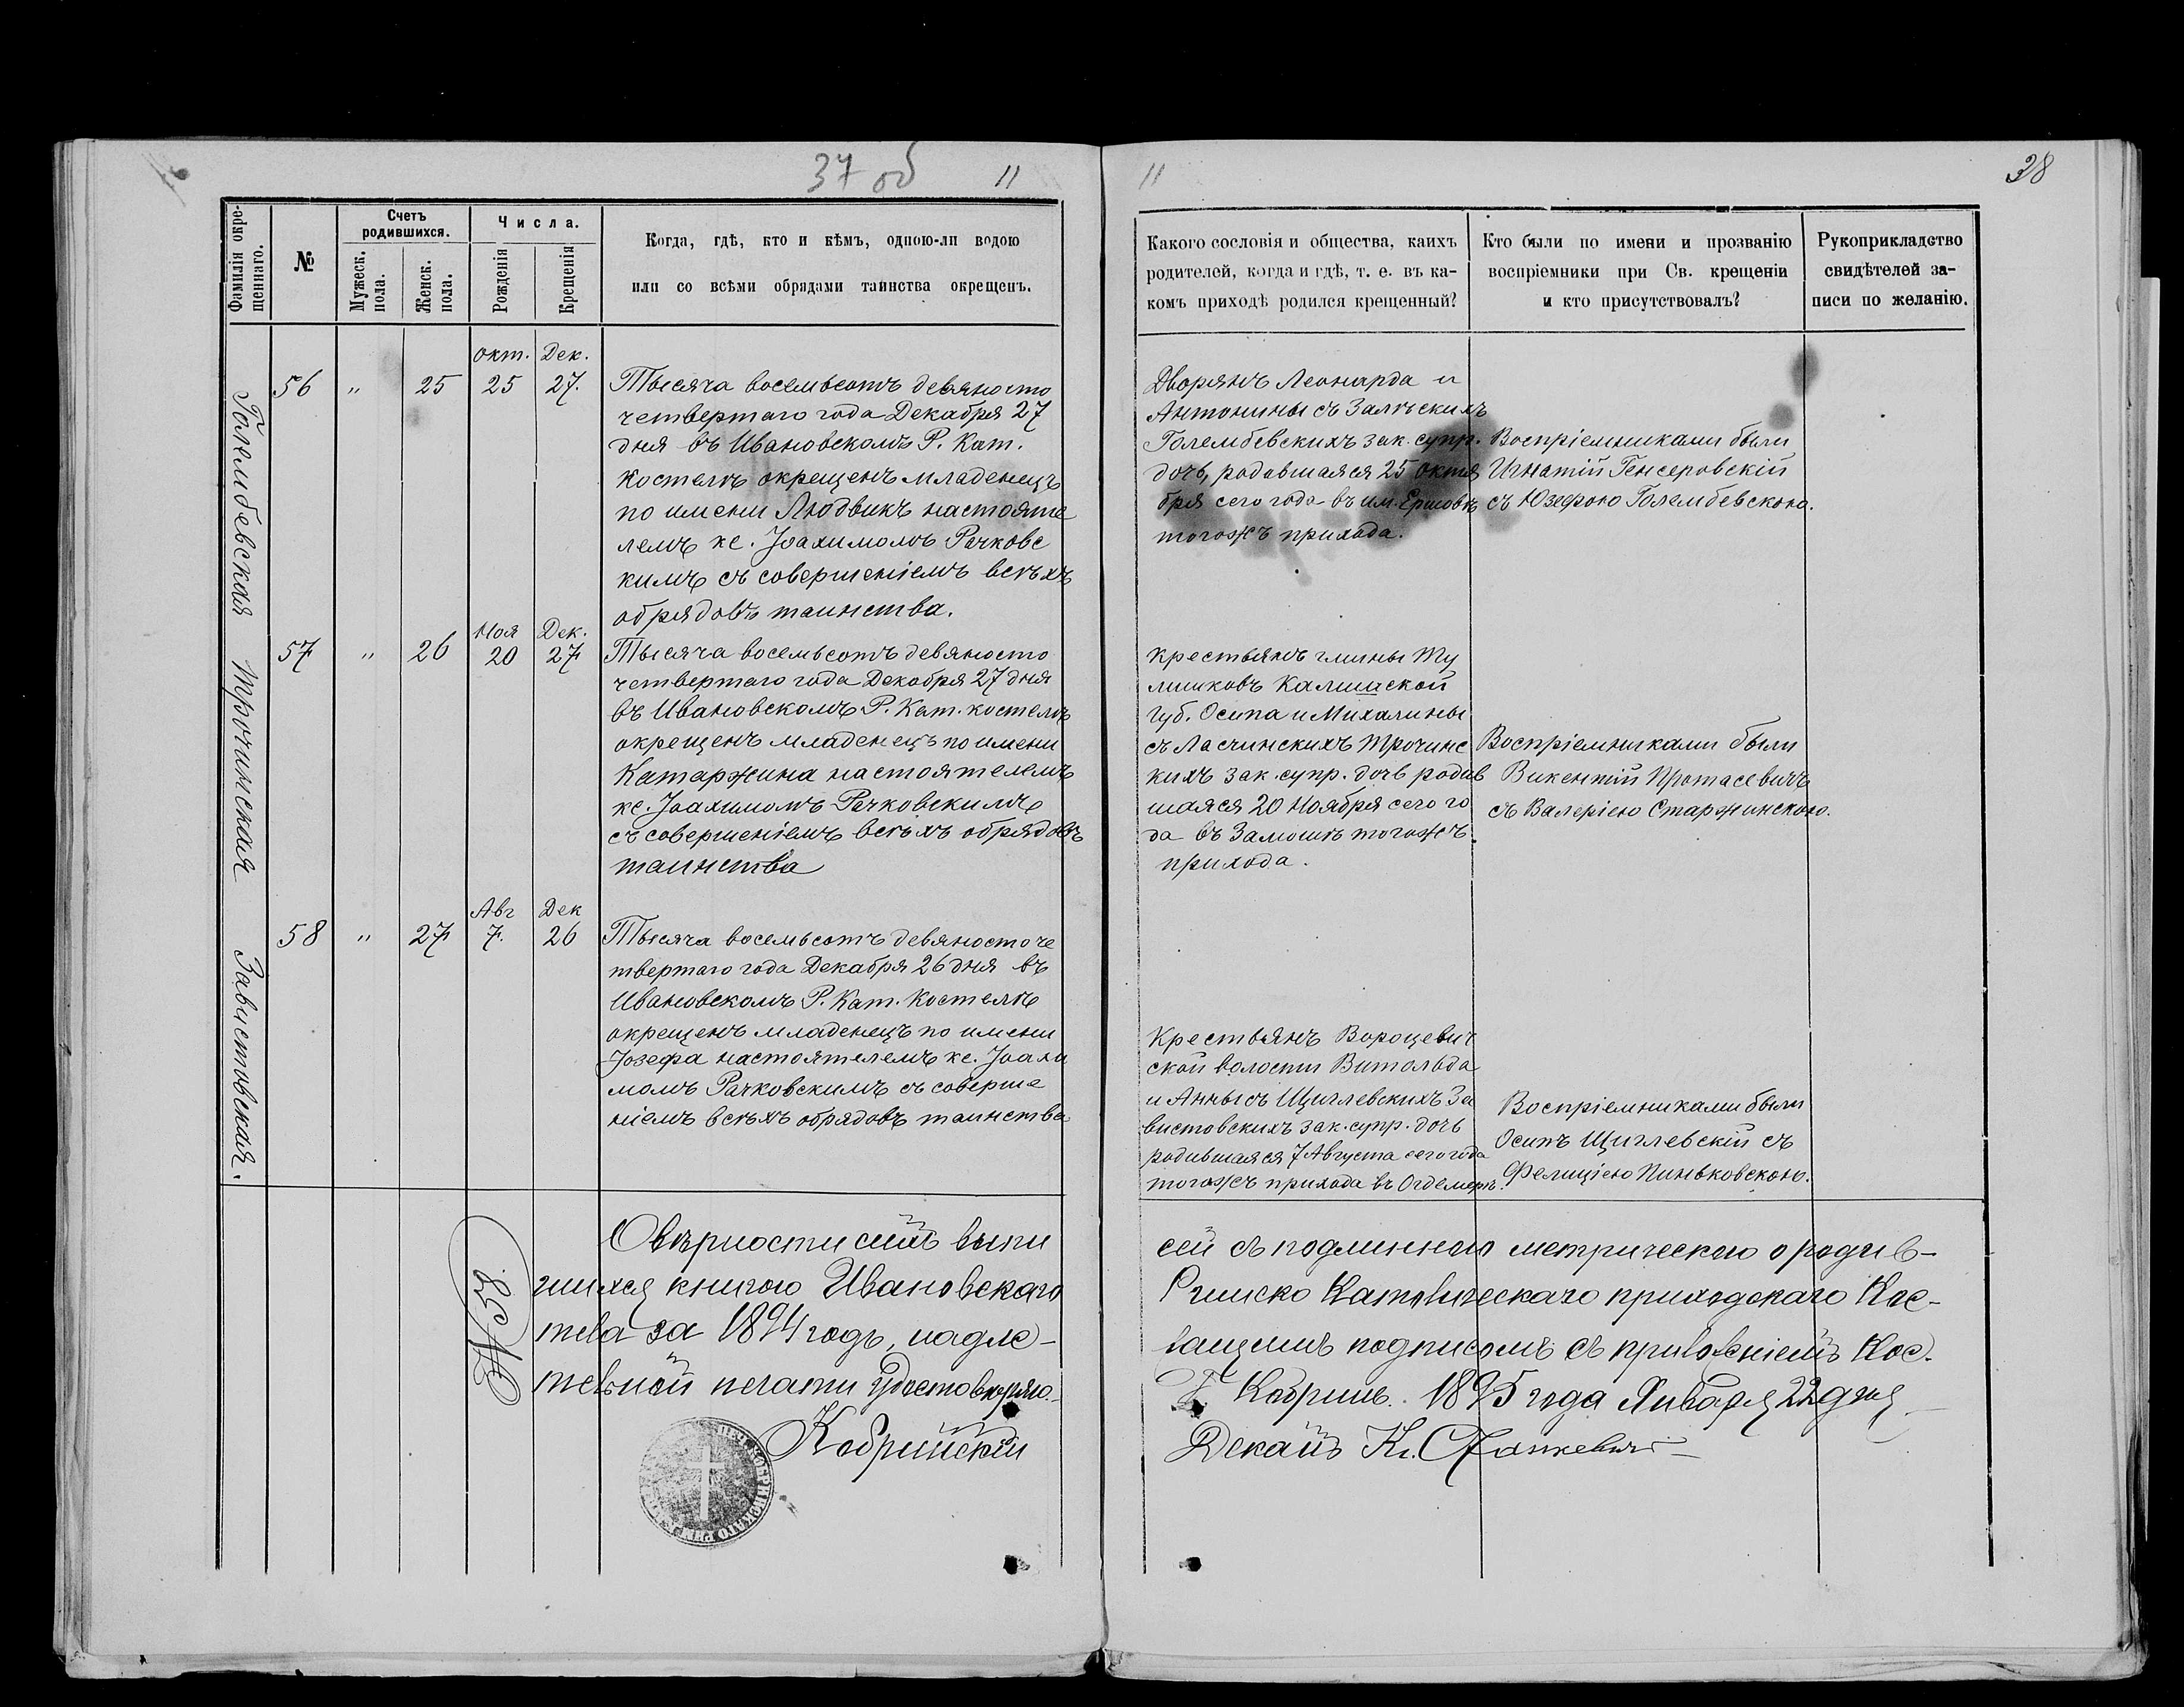 37 об
11
Фамилія окре-
щеннаго.
№
Счетъ
родившихся.
Мужеск.
пола.
Женск.
пола.
Числа.
Рожденія
Крещенія
Когда, гдѣ, кто и кѣмъ, одною-ли водою
или со всѣми обрядами таинства окрещенъ.
Голембевская
56
"
25
Окт.
25
Дек.
27.
Тысяча восемьсотъ девяносто
четвертаго года Декабря 27
дня въ Ивановскомъ Р. Кат.
костелѣ окрещенъ младенецъ
по имени Людвикъ настояте
лемъ кс. Јоахимомъ Рачковс
кимъ съ совершеніемъ всѣхъ
обрядовъ таинства.
Трочинская
57
"
26
Ноя
20
Дек.
27
Тысяча восемьсотъ девяносто
четвертаго года Декабря 27 дня
въ Ивановскомъ Р. Кат. костелѣ
окрещенъ младенецъ по имени
Катаржина настоятелемъ
кс. Јоахимомъ Рачковскимъ
съ совершеніемъ всѣхъ обрядовъ
таинства
Завистовская.
58
"
27
Авг
7.
Дек
26
Тысяча восемьсотъ девяносто че
твертаго года Декабря 26 дня въ
Ивановскомъ Р. Кат. костелѣ
окрещенъ младенецъ по имени
Јозефа настоятелемъ кс. Јоахи
момъ Рачковскимъ съ соверше
ніемъ всѣхъ обрядовъ таинства
О вѣрности сихъ выпи
шихся книгою Ивановскаго
тела за 1894 годъ, надле-
тельной печати удостовѣряю.
Кобринскій
11
38
Какого сословія и общества, каихъ
родителей, когда и гдѣ, т. е. въ ка-
комъ приходѣ родился крещенный?
Кто были по имени и прозванію
воспріемники при Св. крещеніи
и кто присутствовалъ?
Рукоприкладство
свидѣтелей за-
писи по желанію.
Дворянъ Леонарда и
Антонины съ Залѣскихъ
Голембевскихъ зак. супр.
дочь, родавшаяся 25 Октя
бря сего года въ им. Ершовѣ
тогожъ прихода.
Воспріемниками были
Игнатій Генсеровскій
съ Юзефою Голембевскою.
Крестьянъ гмины Ту
лишковъ Калишской
Губ. Осипа и Михалины
съ Ласчинскихъ Трочинс
кихъ зак. супр. дочь родив
шаяся 20 Ноября сего го
да въ Замошѣ тогожъ
прихода.
Воспріемниками были
Викентій Протасевичъ
съ Валеріею Старжинскою.
Крестьянъ Вороцевич
ской волости Витольда
и Анны съ Щиглевскихъ За
вистовскихъ зак. супр. дочь
родившаяся 7 Августа сего года
тогожъ прихода въ Огдемерѣ.
Воспріемниками были
Осипъ Щиглевскій съ
Фелиціею Пиньковскою.
сей съ подлинною метрическою о родив-
Римско Католическаго приходскаго Кос-
жащимъ подписомъ съ приложеніемъ Кос-
Г. Кобринъ. 1895 года Января 22 дня
Деканъ Кс.